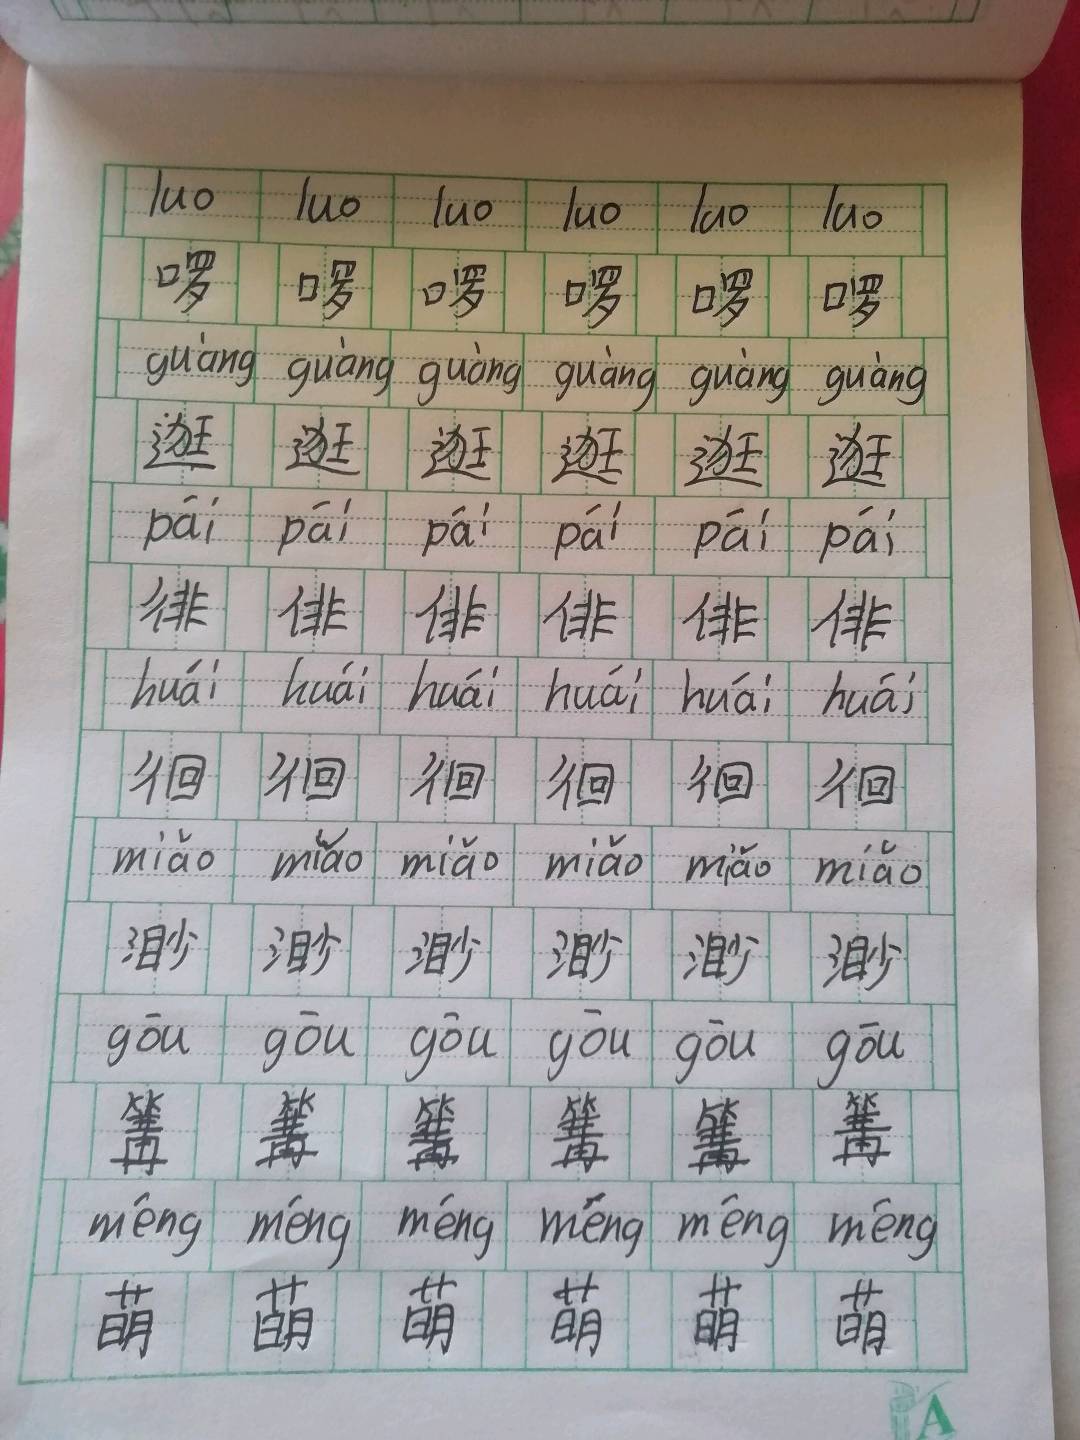 luo luo luo luo luo luo
啰 啰 啰 啰 啰 啰
guàng guàng guàng guàng guàng guàng
逛 逛 逛 逛 逛 逛
pái pái pái pái pái pái
徘 徘 徘 徘 徘 徘
huái huái huái huái huái huái
徊 徊 徊 徊 徊 徊
miǎo miǎo miǎo miǎo miǎo miǎo
渺 渺 渺 渺 渺 渺
gōu gōu gōu gōu gōu gōu
篝 篝 篝 篝 篝 篝
méng méng méng méng méng méng
萌 萌 萌 萌 萌 萌
A